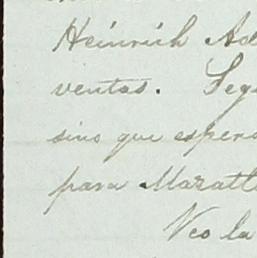 Heinrich Ad
ventas. Seg
sino que espera
para Mazatl
Veo la